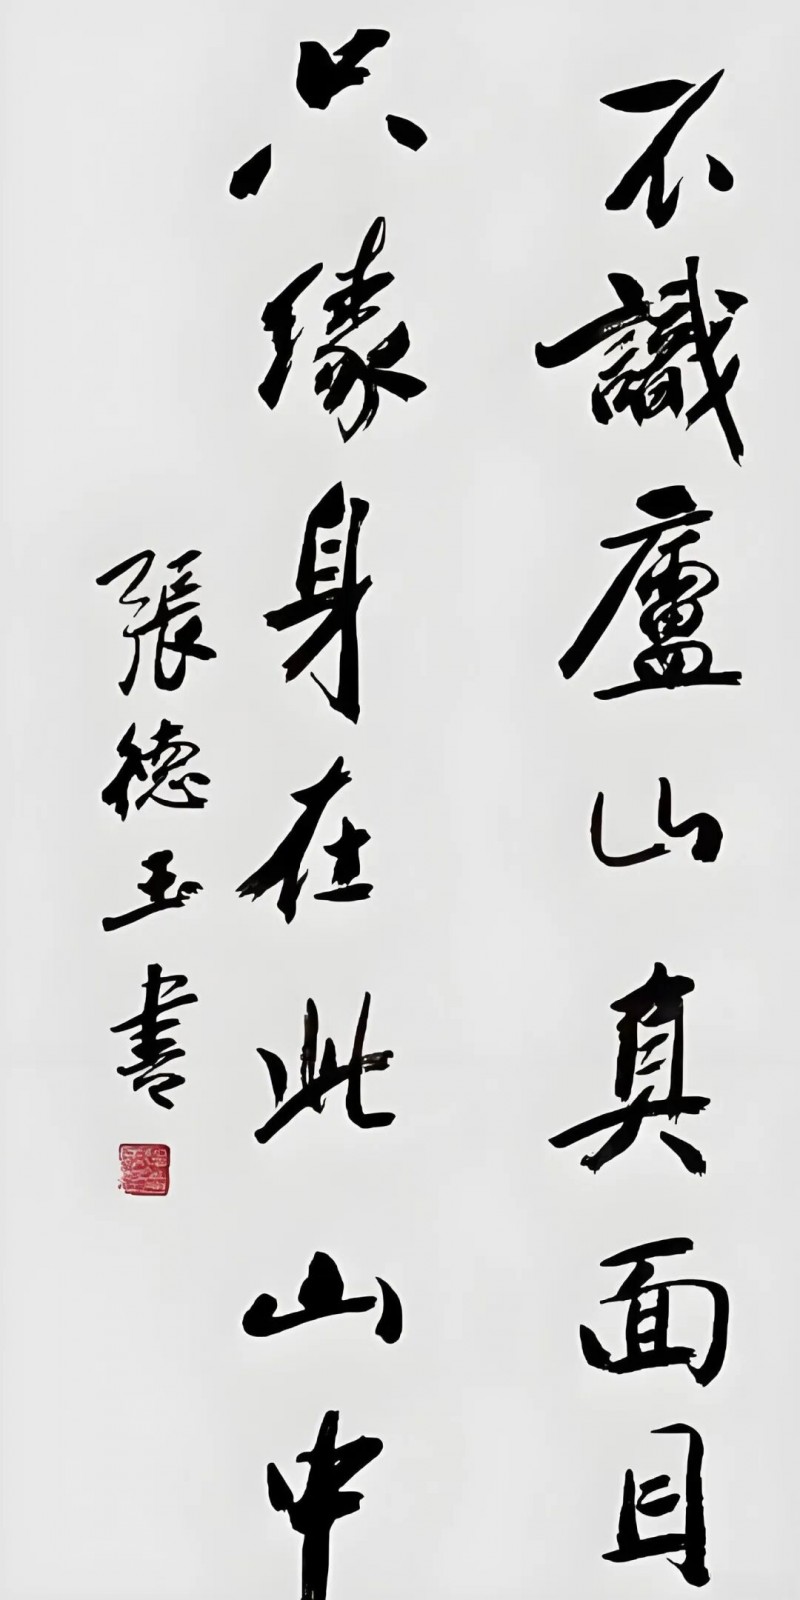 不識廬山真面目
只緣身在此山中
張德玉書